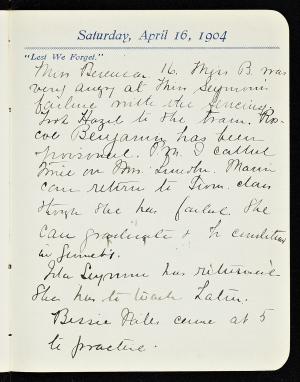 Saturday, April 16, 1904
"Lest We Forget."
Miss Berenice 16. Miss B. was
very angry at Miss Seymour's
failure with the fencing
Took Hazel to the train. Ros-
coe Benjamin has been
poisoned. P.M. I called
on Mrs. Lincoln.
can return to class
though she has failed. She
can graduate
in
Ida Seymour has returned
She has to teach Latin.
Bessie Niles came at 5
to practice.